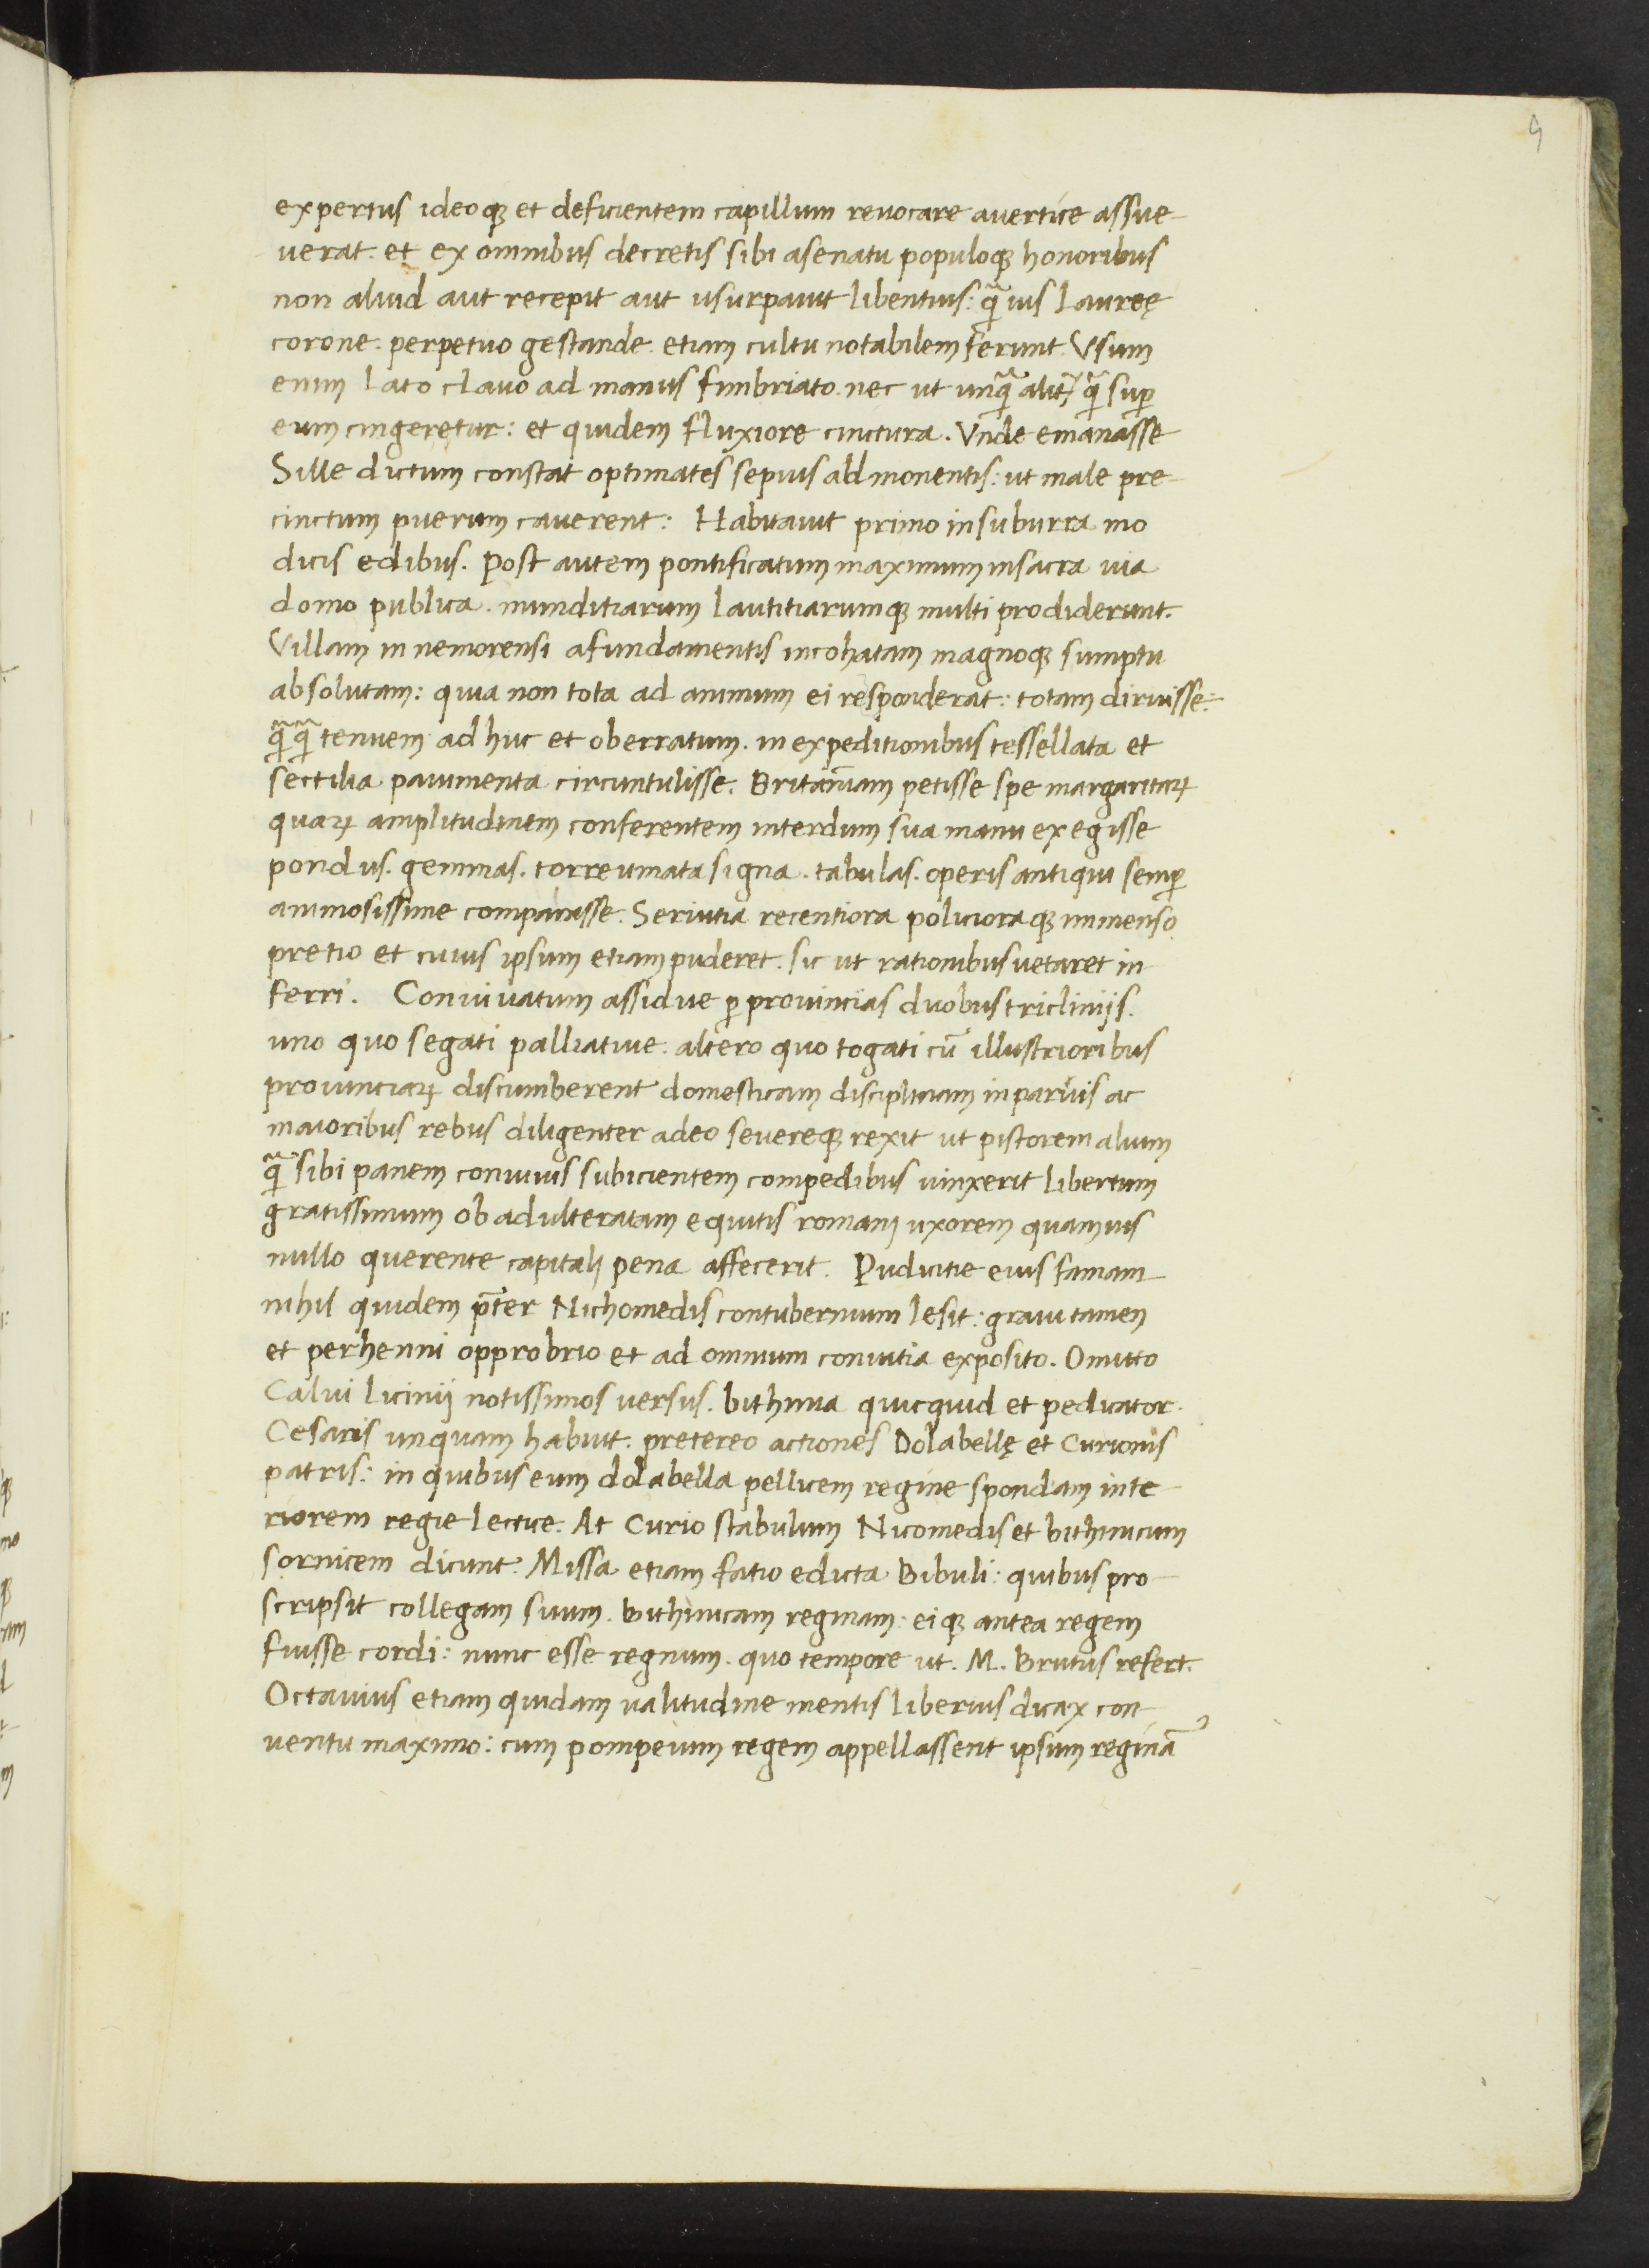 9
expertus ideoqꝫ et deficientem capillum reuocare auertice assue-
uerat. et ex omnibus decretis sibi asenatu populoqꝫ honoribus
non aliud aut recepit aut usurpauit libentius: q̃ ius laureę
corone. perpetuo gestande. etiam cultu notabilem ferunt. Vsum
enim lato clauo ad manus fimbriato. nec ut unq̃ alit̃, q̃ suꝑ
eum cingeretur: et quidem fluxiore cinctura. Vnde emanasse
Sille dictum constat optimates sepius admonentis: ut male pre-
cinctum puerum cauerent: Habitauit primo insuburra mo
dicis edibus. Post autem pontificatum maximum insacra uia
domo publica. munditiarum lautitiarumqꝫ multi prodiderunt.
Villam in nemorensi afundamentis incohatam magnoqꝫ sumptu
absolutam: quia non tota ad animum ei responderat: totam diruisse:
q̃q̃ tenuem adhuc et oberratum. in expeditionibus tessellata et
sectilia pauimenta circuntulisse. Britãniam petisse spe margaritaꝝ
quaꝝ amplitudinem conferentem interdum sua manu exegisse
pondus. gemmas. torreumata signa. tabulas. operis antiqui semꝑ
animosissime comparasse. Seriutia recentiora policioraqꝫ immenso
pretio et cuius ipsum etiam puderet. sic ut rationibus uetaret in-
ferri. Conuiuatum assidue ꝑ prouincias duobus tricliniis.
uno quo segati palliatiue. altero quo togati cũ illustrioribus
prouinciaꝝ discumberent domesticam disciplinam in paruis ac
maioribus rebus diligenter adeo seuereqꝫ rexit ut pistorem alium
q̃ sibi panem conuiuis subicientem compedibus uinxerit libertum
gratissimum ob adulteratam equitis romanj uxorem quamuis
nullo querente capitalj pena affecerit. Pudicitie eius famam
nihil quidem p̃ter Nichomedis contubernium lesit: graui tamen
et perhenni opprobrio et ad omnium conuitia exposito. Omitto
Calui licinij notissimos uersus. bithinia quicquid et pedicator.
Cesaris unquam habuit. pretereo actiones Dolabellę et Curionis
patris: in quibus eum dolabella pellicem regine spondam inte-
riorem regie lectice. At Curio stabulum Nicomedis et bithinicum
fornicem dicunt. Missa etiam fatio edicta Bibuli: quibus pro-
scripsit collegam suum. bithinicam reginam: eiqꝫ antea regem
fuisse cordi: nunc esse regnum. quo tempore ut. M. Brutus refert.
Octauius etiam quidam ualitudine mentis liberius dicax con-
uentu maximo: cum pompeium regem appellassent ipsum reginã